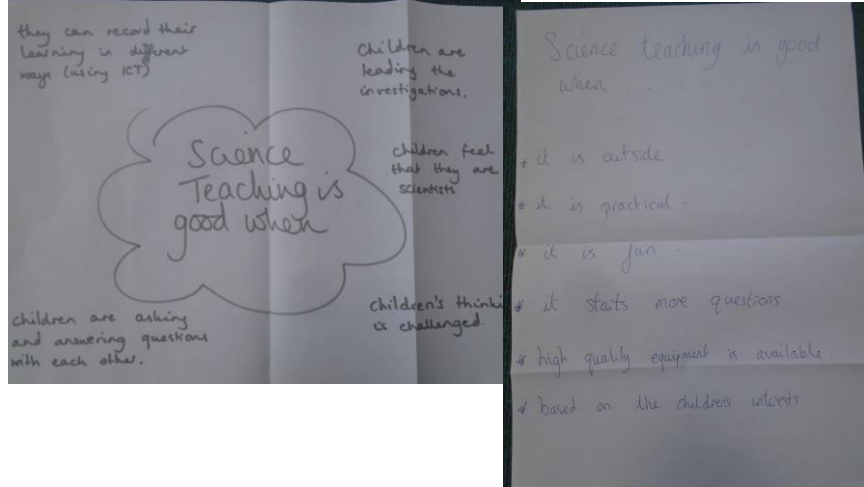 they can record their
learning in different
ways (using ICT)
Children are
leading the
investigations.
Science
Teaching is
good when
children feel
that they are
scientists
children's thinki
is challenged.
children are asking
and answering questions
with each other.
Science teaching is good
when . . . . . .
* it is outside
* it is practical -
* it is fun -
* it starts more questions.
* high quality equipment is available.
* based on the children's interests